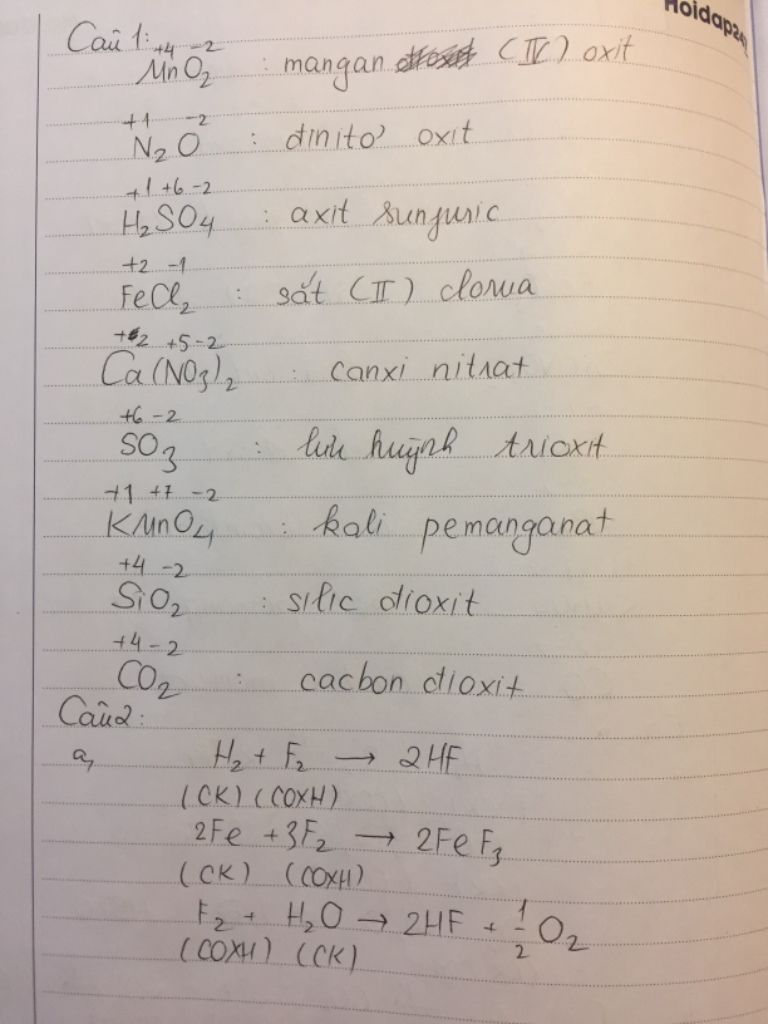 Hoidap24
Câu 1:
+4 -2
MnO₂ : mangan (IV) oxit
+1 -2
N₂O : đinitơ oxit
+1 +6 -2
H₂SO₄ : axit sunfuric
+2 -1
FeCl₂ : sắt (II) clorua
+2 +5 -2
Ca(NO₃)₂ : canxi nitrat
+6 -2
SO₃ : lưu huỳnh trioxit
+1 +7 -2
KMnO₄ : kali pemanganat
+4 -2
SiO₂ : silic đioxit
+4 -2
CO₂ : cacbon đioxit
Câu 2:
a, H₂ + F₂ → 2HF
(CK) (COXH)
2Fe + 3F₂ → 2FeF₃
(CK) (COXH)
F₂ + H₂O → 2HF + 1/2 O₂
(COXH) (CK)